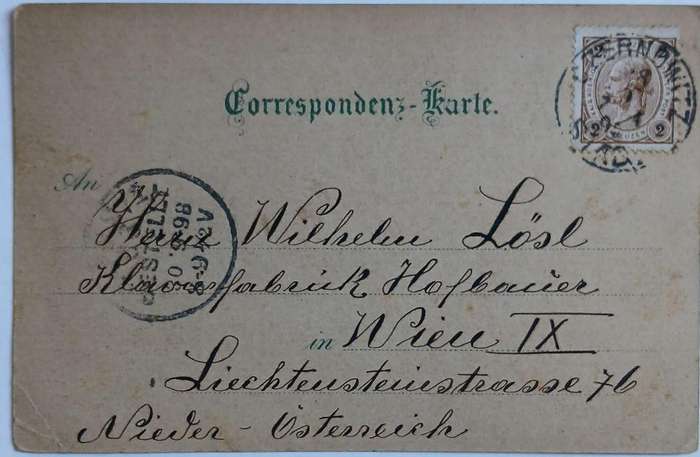 CZERNOWITZ
2 2
Correspondenz-Karte.
An
Herrn Wilhelm Lösl
BESTELLT
98
Klavierfabrick Hofbauer
in Wien IX
Liechtensteinstrasse 76
Nieder-Österreich